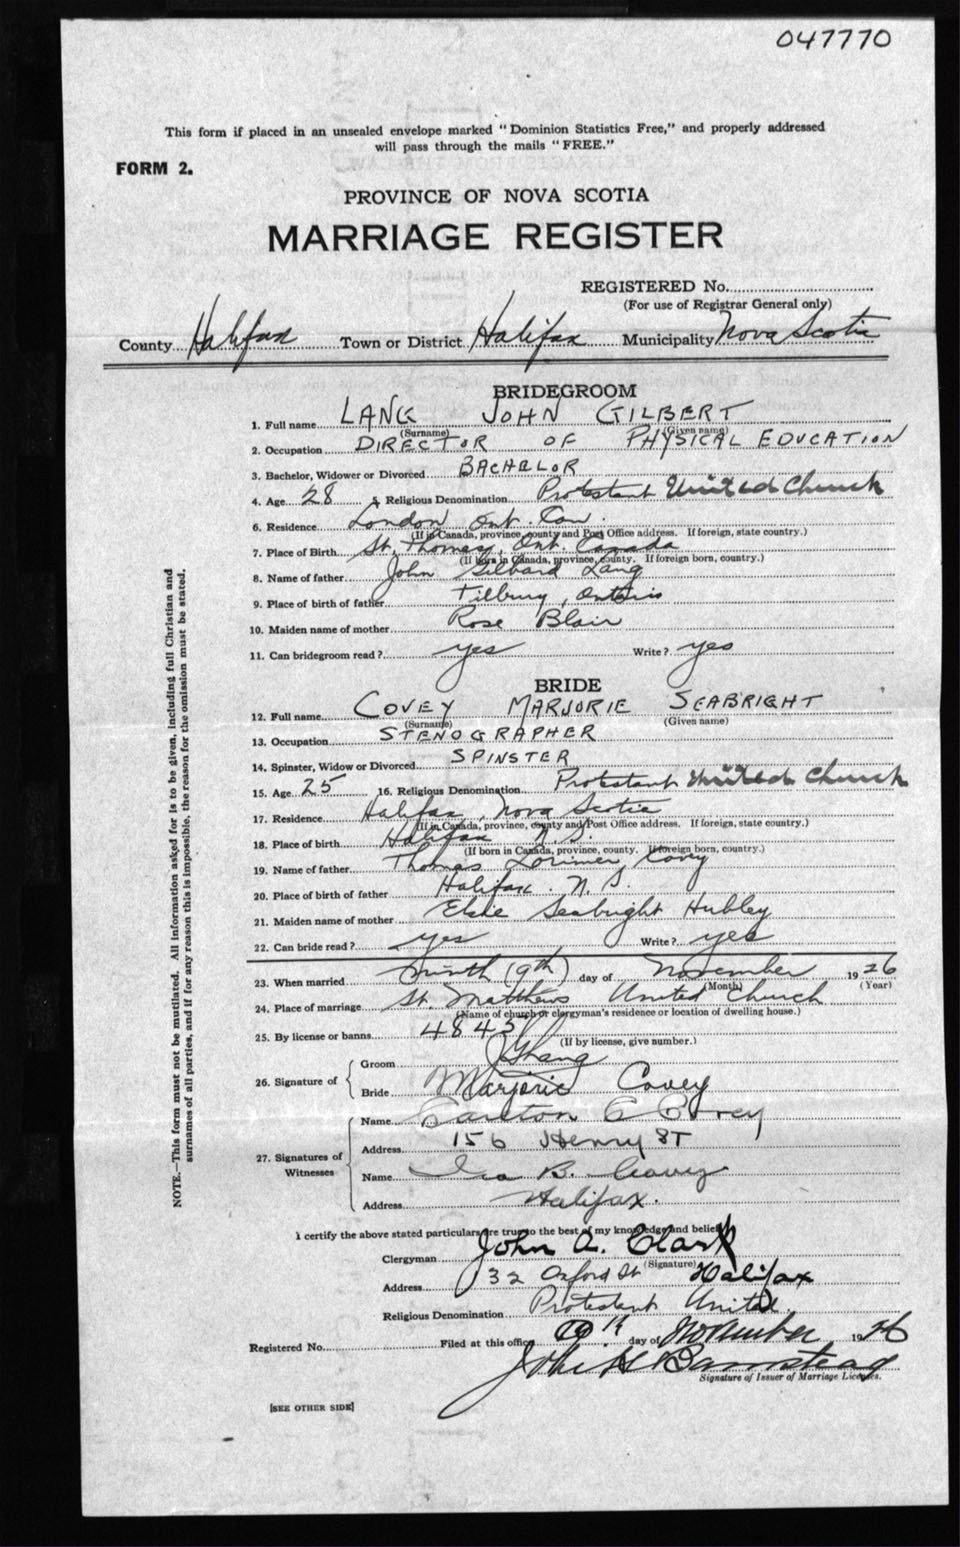 047770
This form if placed in an unsealed envelope marked "Dominion Statistics Free," and properly addressed
will pass through the mails "FREE."
FORM 2.
PROVINCE OF NOVA SCOTIA
MARRIAGE REGISTER
REGISTERED No.
(For use of Registrar General only)
County Halifax Town or District Halifax Municipality Nova Scotia
BRIDEGROOM
1. Full name LANG JOHN GILBERT
(Surname) (Given name)
2. Occupation DIRECTOR OF PHYSICAL EDUCATION
3. Bachelor, Widower or Divorced BACHELOR
4. Age 28 5. Religious Denomination Protestant United Church
6. Residence London Ont. Can.
(If in Canada, province, county and Post Office address. If foreign, state country.)
7. Place of Birth St. Thomas, Ont. Canada
(If born in Canada, province, county. If foreign born, country.)
8. Name of father John Gilbard Lang
9. Place of birth of father Tilbury, Ontario
10. Maiden name of mother Rose Blair
11. Can bridegroom read? yes Write? yes
BRIDE
12. Full name COVEY MARJORIE SEABRIGHT
(Surname) (Given name)
13. Occupation STENOGRAPHER
14. Spinster, Widow or Divorced SPINSTER
15. Age 25 16. Religious Denomination Protestant United Church
17. Residence Halifax, Nova Scotia
(If in Canada, province, county and Post Office address. If foreign, state country.)
18. Place of birth Halifax N.S.
(If born in Canada, province, county. If foreign born, country.)
19. Name of father Thomas Lorimer Covey
20. Place of birth of father Halifax. N.S.
21. Maiden name of mother Elsie Seabright Hubley
22. Can bride read? yes Write? yes
23. When married ninth (9th) day of November 1926
(Month) (Year)
24. Place of marriage St. Matthews United Church
(Name of church or clergyman's residence or location of dwelling house.)
25. By license or banns 4845
(If by license, give number.)
26. Signature of
Groom JGLang
Bride Marjorie Covey
27. Signatures of Witnesses
Name Carlton E Covey
Address 156 Henry ST
Name B. Covey
Address Halifax.
I certify the above stated particulars are true to the best of my knowledge and belief.
Clergyman John A. Clark
(Signature)
Address 32 Oxford St Halifax
Religious Denomination Protestant United.
Registered No. Filed at this office 19th day of November 1926
John H Barnstead
Signature of Issuer of Marriage Licenses.
[SEE OTHER SIDE]
NOTE.—This form must not be mutilated. All information asked for is to be given, including full Christian and
surnames of all parties, and if for any reason this is impossible, the reason for the omission must be stated.